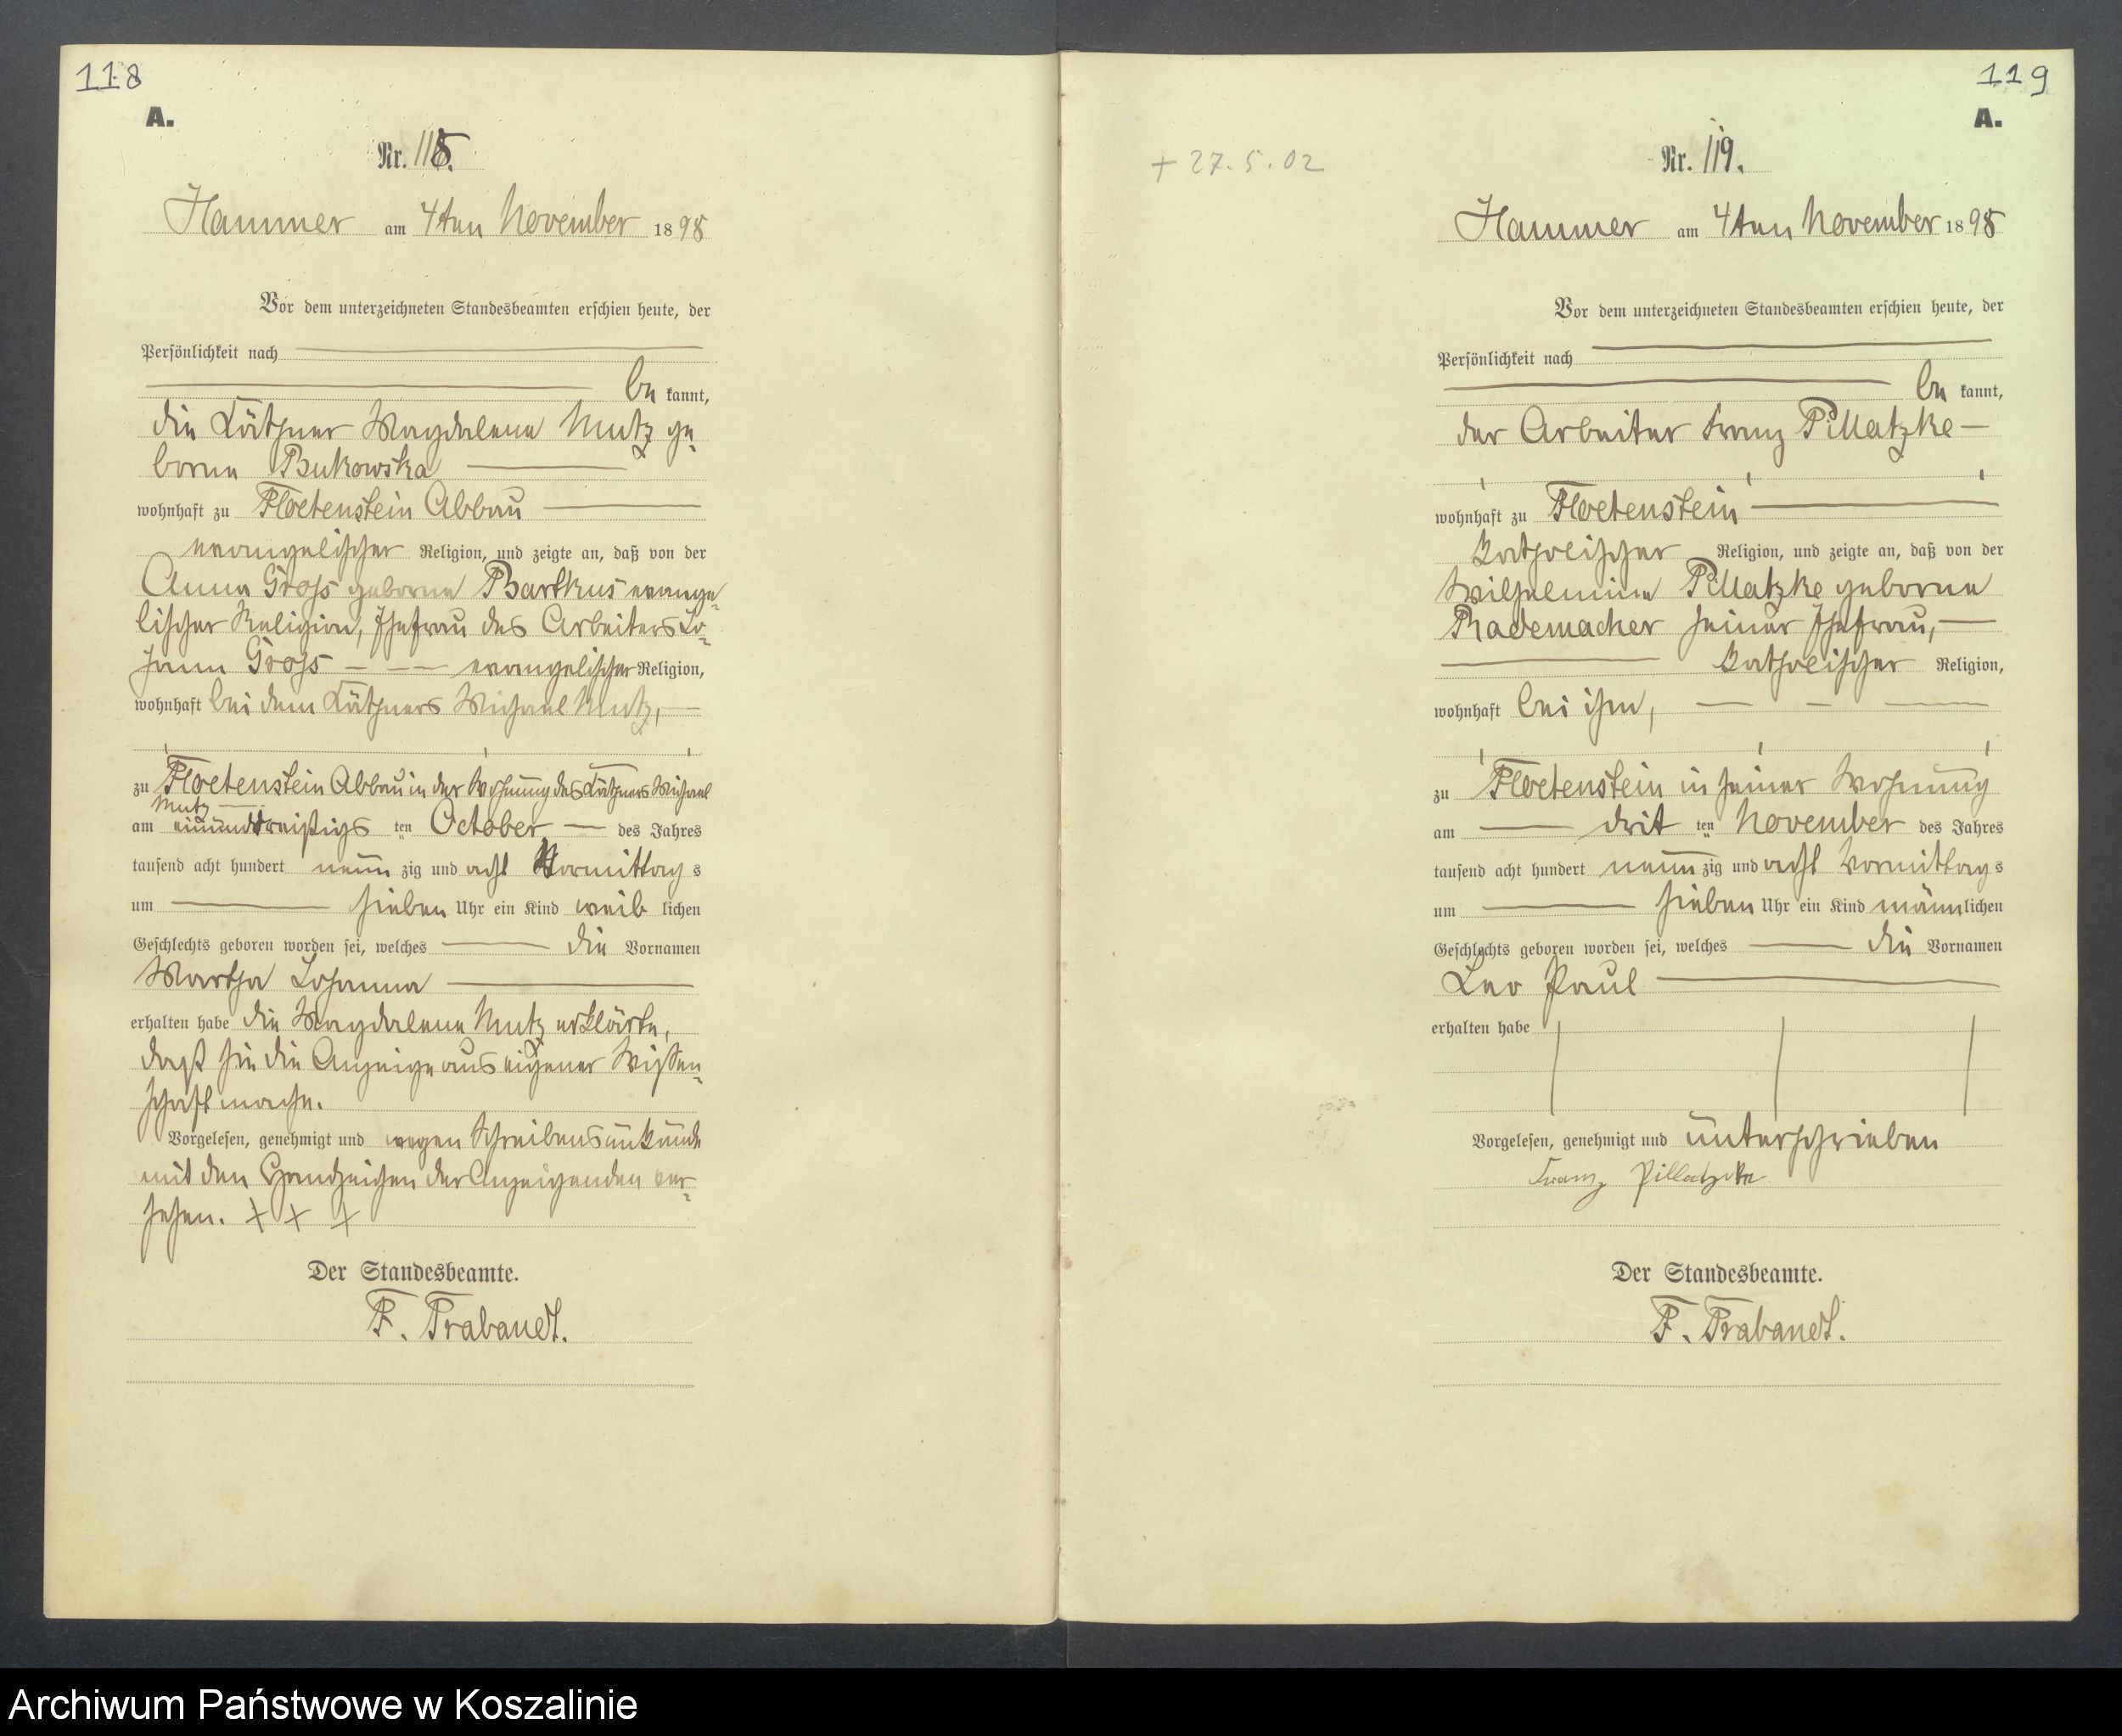 118
A.
Nr. 118.
Hammer am 4ten November 1898
Vor dem unterzeichneten Standesbeamten erschien heute, der
Persönlichkeit nach
be kannt,
die Käthner Magdalene Mutz ge-
borene Bukowska
wohnhaft zu Floetenstein Abbau
evangelischer Religion, und zeigte an, daß von der
Anna Gross geborene Bartkus evange-
lischer Religion, Ehefrau des Arbeiters Jo-
hann Gross evangelischer Religion,
wohnhaft bei dem Käthners Michael Mutz,
zu Floetenstein Abbau in der Wohnung des Käthners Michael
Mutz
am einunddreißigs ten October des Jahres
tausend acht hundert neun zig und acht Vormittag s
um sieben Uhr ein Kind weib lichen
Geschlechts geboren worden sei, welches die Vornamen
Martha Johanna
erhalten habe die Magdalene Mutz erklärte,
daß sie die Anzeige aus eigener Wissen-
schaft mache.
Vorgelesen, genehmigt und wegen Schreibensunkunde
mit den Handzeichen der Anzeigenden ver-
sehen. + + +
Der Standesbeamte.
F. Trabandt.
119
A.
+ 27.5.02
Nr. 119.
Hammer am 4ten November 1898
Vor dem unterzeichneten Standesbeamten erschien heute, der
Persönlichkeit nach
be kannt,
der Arbeiter Franz Pillatzke
wohnhaft zu Floetenstein
katholischer Religion, und zeigte an, daß von der
Wilhelmine Pillatzke geborene
Rademacher seiner Ehefrau,
katholischer Religion,
wohnhaft bei ihm,
zu Floetenstein in seiner Wohnung
am drit ten November des Jahres
tausend acht hundert neun zig und acht Vormittag s
um sieben Uhr ein Kind männ lichen
Geschlechts geboren worden sei, welches die Vornamen
Leo Paul
erhalten habe
Vorgelesen, genehmigt und unterschrieben
Franz Pillatzke
Der Standesbeamte.
F. Trabandt.
Archiwum Państwowe w Koszalinie